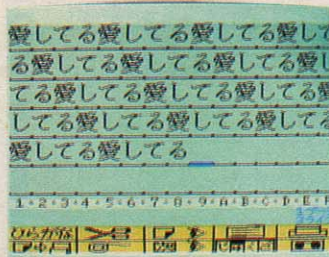 愛してる愛してる愛してる愛して
る愛してる愛してる愛してる愛し
てる愛してる愛してる愛してる愛
してる愛してる愛してる愛してる
愛してる愛してる
1 2 3 4 5 6 7 8 9 A B C D E F
ひらがな